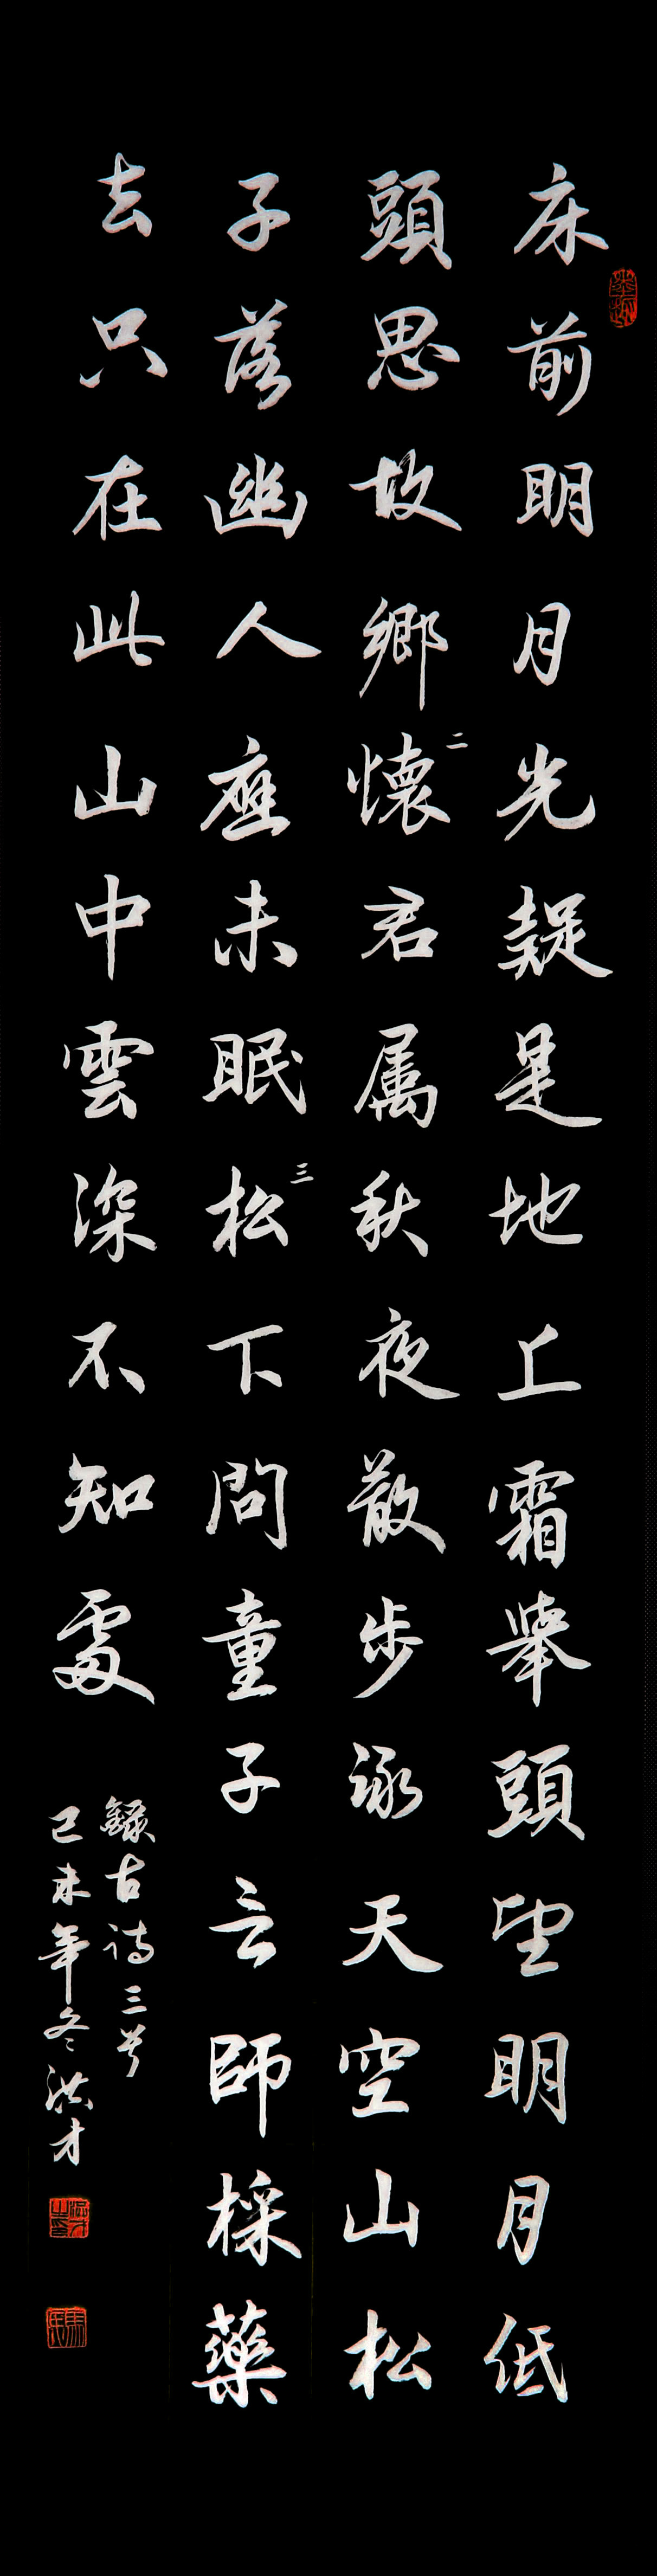 床前明月光疑是地上霜舉頭望明月低
頭思故鄉二懷君属秋夜散步泳天空山松
子落幽人應未眠三松下問童子云師採藥
去只在此山中雲深不知處
錄古詩三首
己未年冬洪才